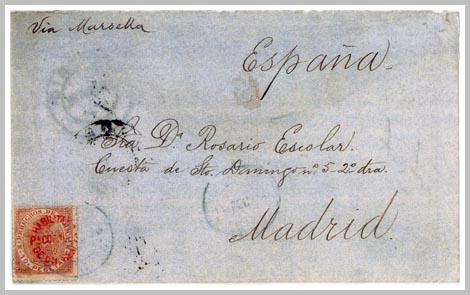 Via Marsella
España
Sra. Dª Rosario Escolar.
Cuesta de Sto. Domingo nº 5-2º dra.
Madrid
HABILITADO